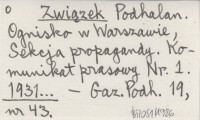 o Związek Podhalan.
Ognisko w Warszawie,
Sekcja propagandy. Ko-
munikat prasowy Nr. 1.
1931... – Gaz. Podh. 19,
nr 43.